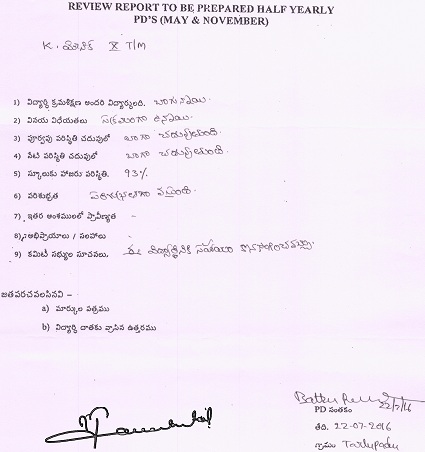 REVIEW REPORT TO BE PREPARED HALF YEARLY
PD'S (MAY & NOVEMBER)
K. మౌనిక X T/M
1) విద్యార్థి క్రమశిక్షణ అందరి విద్యార్థులది. బాగున్నాయి.
2) వినయ విధేయతలు ఉన్నాయి.
3) పూర్వపు పరిస్థితి చదువులో బాగా చదువుతుంది.
4) నేటి పరిస్థితి చదువులో బాగా చదువుతుంది.
5) స్కూలుకు హాజరు పరిస్థితి. 93%
6) పరిశుభ్రత పరిశుభ్రంగా వస్తుంది.
7) ఇతర అంశములలో ప్రావీణ్యత -
8) అభిప్రాయాలు / సలహాలు -
9) కమిటీ సభ్యుల సూచనలు. ఈ విద్యార్థినికి సహాయం కొనసాగించవచ్చు.
జతపరచవలసినవి –
a) మార్కుల పత్రము
b) విద్యార్థి దాతకు వ్రాసిన ఉత్తరము
22/7/16
PD సంతకం
తేది. 22-07-2016
గ్రామం Tarlupadu